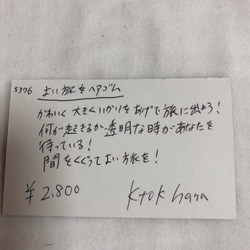 S376 よい旅をヘアゴム
かわいく大きくいかりをあげて旅に出よう!
何が起きるか透明な時があなたを
待っている!
闇をくぐってよい旅を!
¥2,800 ktok hana